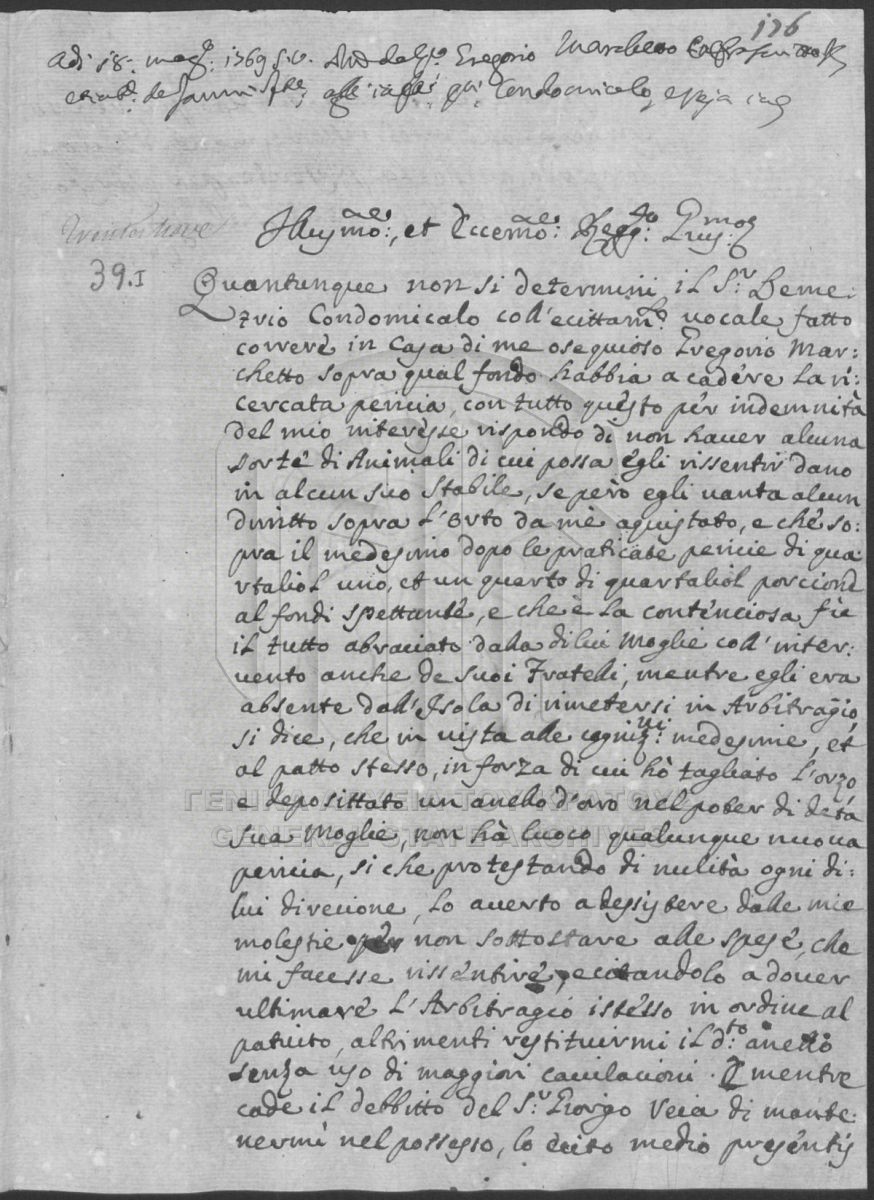 176
Adi 18: magº: 1769 S.V. Gregorio Marcheto
Condomicalo,
Illusmo:, et Eccemo: Regg:to
39.I
Quantunque non si determini il S:r Deme:
trio Condomicalo coll'ecittam:to uocale fatto
correre in Casa di me osequioso Gregorio Mar:
chetto sopra qual fondo habbia a cadere la ri:
cercata pericia, con tutto questo per indemnità
del mio interesse rispondo di non hauer alcuna
sorte di Animali di cui possa egli rissentir dano
in alcun suo stabile, se però egli uanta alcun
diritto sopra l'Orto da me aquistato, e che so:
pra il medesimo dopo le praticate pericie di qua:
rtaliol uno, et un quarto di quartaliol porcione
al fondi spettante, e che è la contenciosa fù
il tutto abraciato dalla di lui Moglie coll'inter:
uento anche de suoi Fratelli, mentre egli era
absente dall'Isola di rimetersi in Arbitragio,
si dice, che in uista alle medesime, et
al patto stesso, in forza di cui hò tagliato l'orzo
e deposittato un anello d'oro nel poter di deta
sua Moglie, non hà luoco qualunque nuoua
pericia, si che protestando di nulità ogni di:
lui direcione, lo auerto a dessistere dalle mie
molestie per non sottostare alle spese, che
mi facesse rissentire, ecitandolo a douer
ultimare l'Arbitragio istesso in ordine al
patuito, altrimenti restituirmi il d:to anello
senza uso di maggiori cauilacioni. E mentre
cade il debbitto del S:r Giorgo Veia di mante:
nermi nel possesso, lo ecito medio presentis